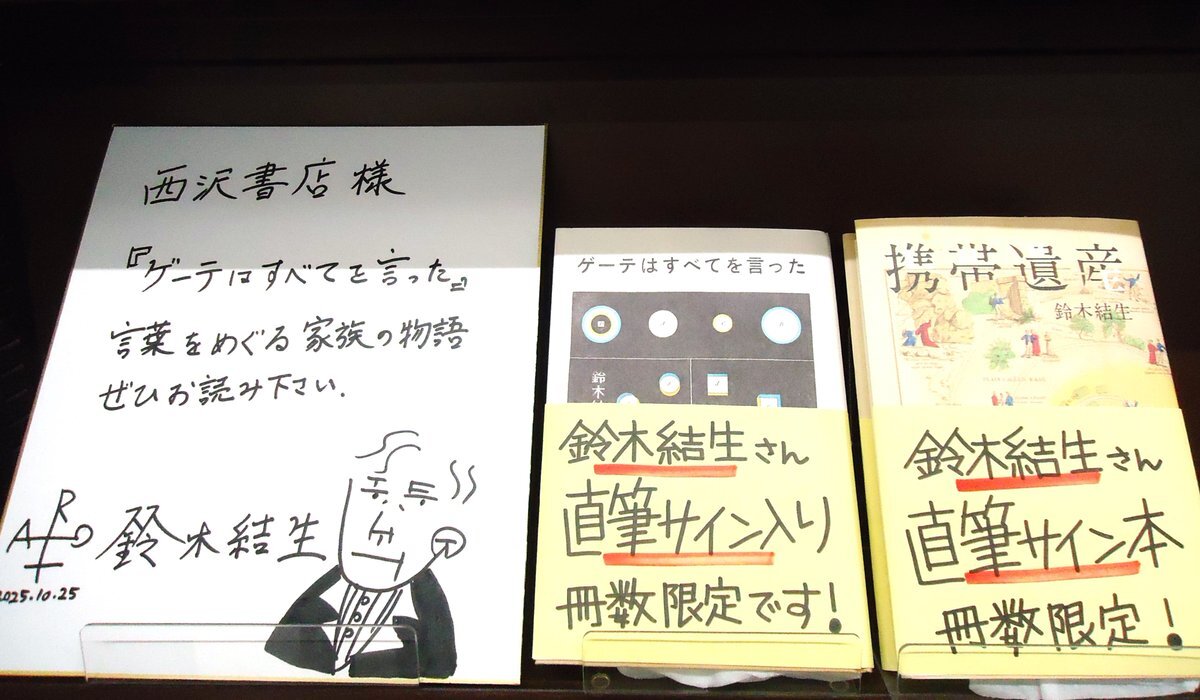 西沢書店 様
『ゲーテはすべてを言った』
言葉をめぐる家族の物語
ぜひお読み下さい.
鈴木結生
2025.10.25
ゲーテはすべてを言った
鈴木
鈴木結生さん
直筆サイン入り
冊数限定です!
携帯遺産
鈴木結生
鈴木結生さん
直筆サイン本
冊数限定!